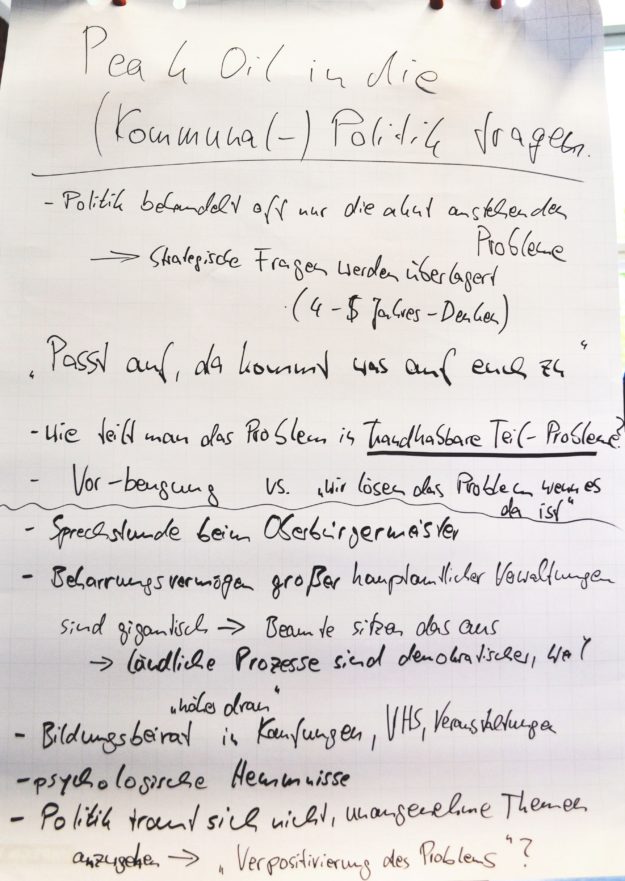 Peak Oil in die
(Kommunal-) Politik tragen.
- Politik behandelt oft nur die akut anstehenden
Probleme
→ Strategische Fragen werden überlagert
(4-5 Jahres-Denken)
„Passt auf, da kommt was auf euch zu“
- Wie teilt man das Problem in handhabbare Teil-Probleme?
- Vor-beugung vs. „Wir lösen das Problem wenn es
da ist“
- Sprechstunde beim Oberbürgermeister
- Beharrungsvermögen großer hauptamtlicher Verwaltungen
sind gigantisch → Beamte sitzen das aus
→ ländliche Prozesse sind demokratischer, weil
„näher dran“
- Bildungsbeirat in Kaufungen, VHS, Veranstaltungen
- psychologische Hemmnisse
- Politik traut sich nicht, unangenehme Themen
anzugehen → „Verpositivierung des Problems“?